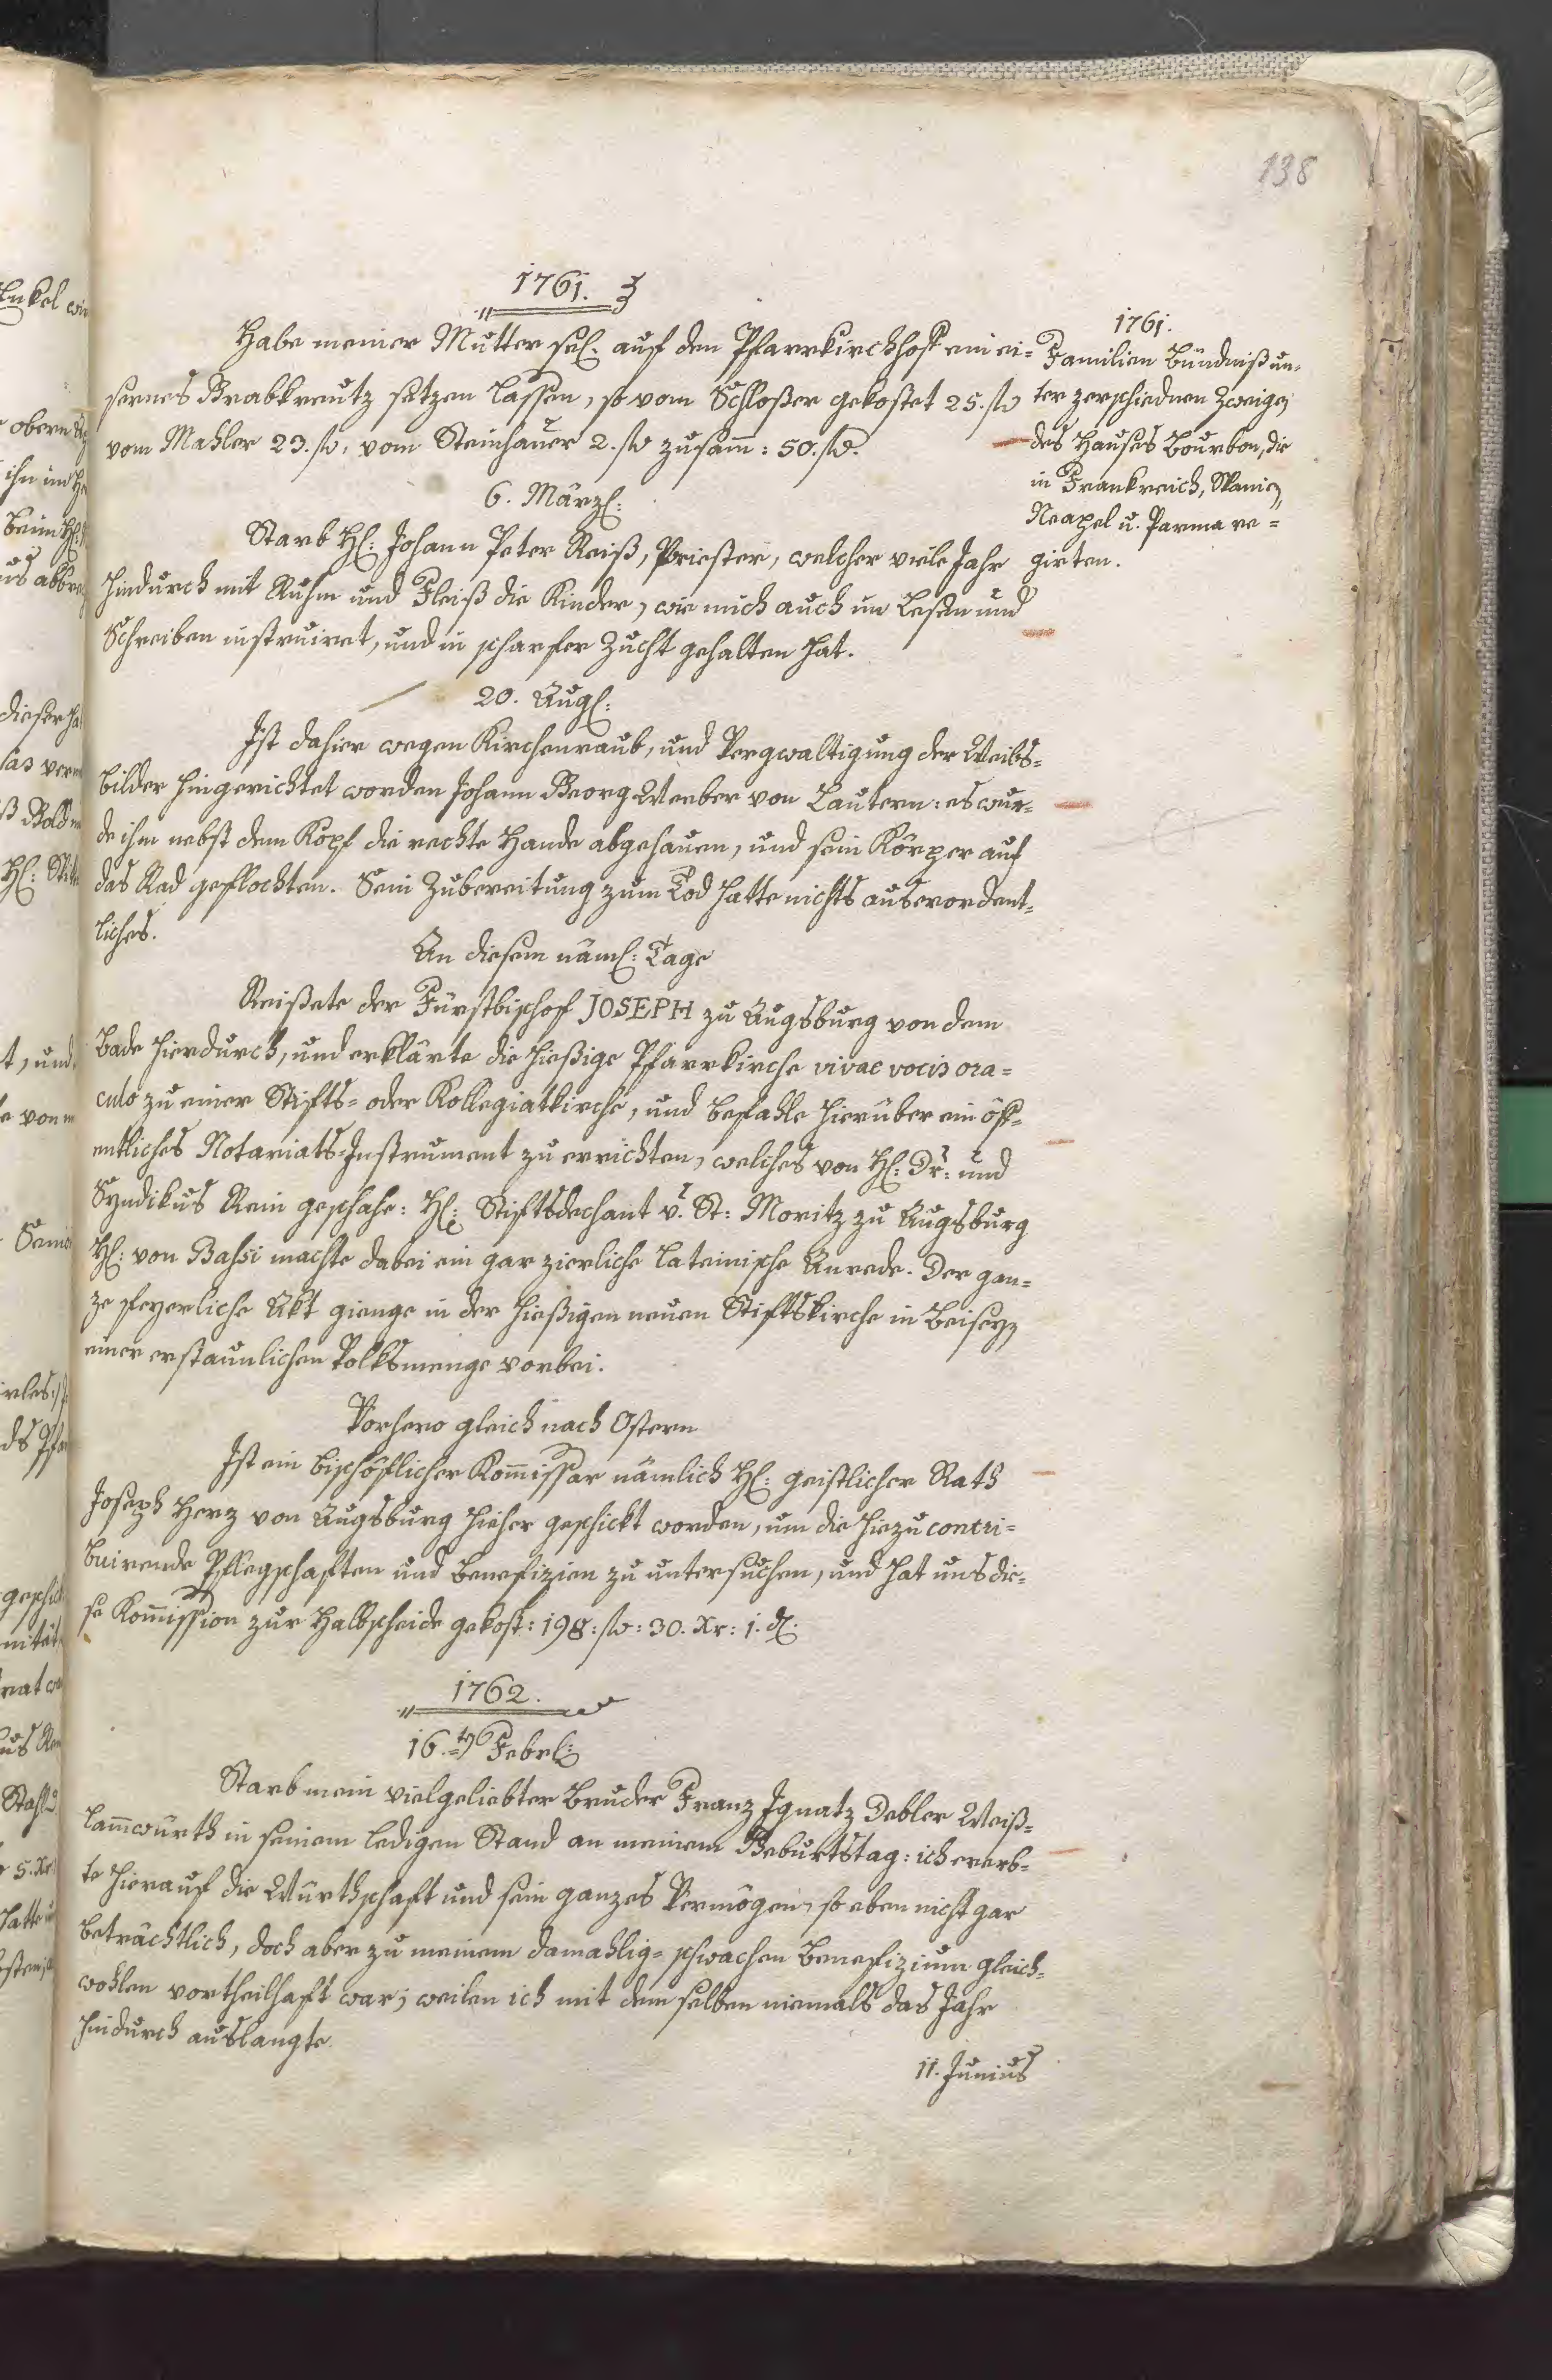 138
1761.
Habe meiner Mutter sel. auf den Pfarrkirchhof ein ei=
sernes Grabkreutz setzen lassen, so vom Schloßer gekostet 25. fl.
vom Mahler 23. fl. vom Steinhauer 2. fl. zusam̄: 50. fl.
6. Märzl:
Starb Hl: Johann Peter Reiß, Priester, welcher viele Jahr
hindurch mit Ruhm und Fleiß die Kinder, wie mich auch im Lesen und
Schreiben instruiret, und in scharfer Zucht gehalten hat.
20. Augl:
Ist dahier wegen Kirchenraub, und Vergwaltigung der Weibs=
bilder hingerichtet worden Johann Georg Weeber von Lautern: es wur=
de ihm nebst dem Kopf die rechte Hande abgehauen, und sein Körper auf
das Rad geflochten. Sein Zubereitung zum Tod hatte nichts auserordent=
liches.
An diesem näml: Tage
Reißete der Fürstbischof JOSEPH zu Augsburg von dem
Bade hierdurch, und erklärte die hießige Pfarrkirche vivae vocis ora=
culo zu einer Stifts= oder Kollegiatkirche, und befahle hierüber ein öf=
entliches Notariats=Instrument zu errichten, welches von Hl: Dr: und
Syndikus Rein geschahe: Hl: Stiftsdechant v. St: Moritz zu Augsburg
Hl: von Bassi machte dabei ein gar zierliche Lateinische Anrede. Der gan=
ze feyerliche Akt gienge in der hießigen neuen Stiftskirche in Beiseyn
einer erstaunlichen Volksmenge vorbei.
Vorhero gleich nach Ostern
Ist ein bischöflicher Kom̄issar nämlich Hl: geistlicher Rath
Joseph Herz von Augsburg hieher geschickt worden, um die hiezu contri=
buirende Pflegschaften und Benefizien zu untersuchen, und hat uns die=
se Kom̄ission zur Halbscheide gekost: 198: fl: 30. Xr: 1. d.
1762.
16.ten Febrl:
Starb mein vielgeliebter Bruder Franz Ignatz Debler Weiß=
lam̄würth in seinem ledigen Stand an meinem Geburtstag: ich ererb=
te hierauf die Würthschaft und sein ganzes Vermögen, so eben nicht gar
beträchtlich, doch aber zu meinem damahlig= schwachen Benefizium gleich=
wohlen vortheilhaft war; weilen ich mit dem selben niemals das Jahr
hindurch auslangte.
11. Junius
1761.
Familien Bündniß un=
ter zerschiednen Zweigen
des Hauses Bourbon, die
in Frankreich, Spanien,
Neapel u. Parma re=
girten.